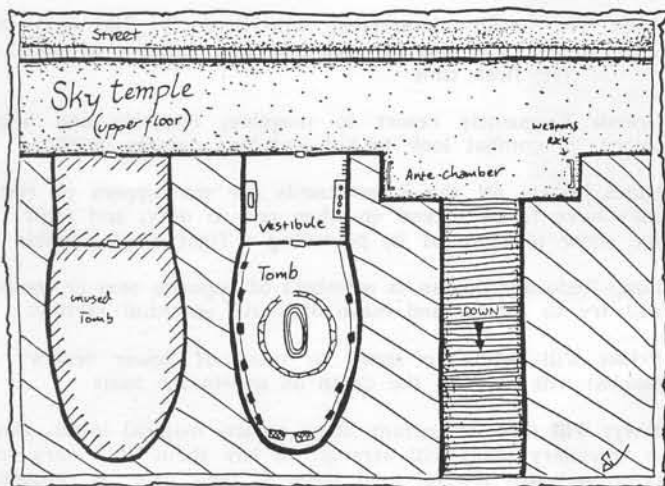 Street
Sky temple
(upper floor)
weapons
rack
Ante-chamber
vestibule
Tomb
unused
Tomb
DOWN